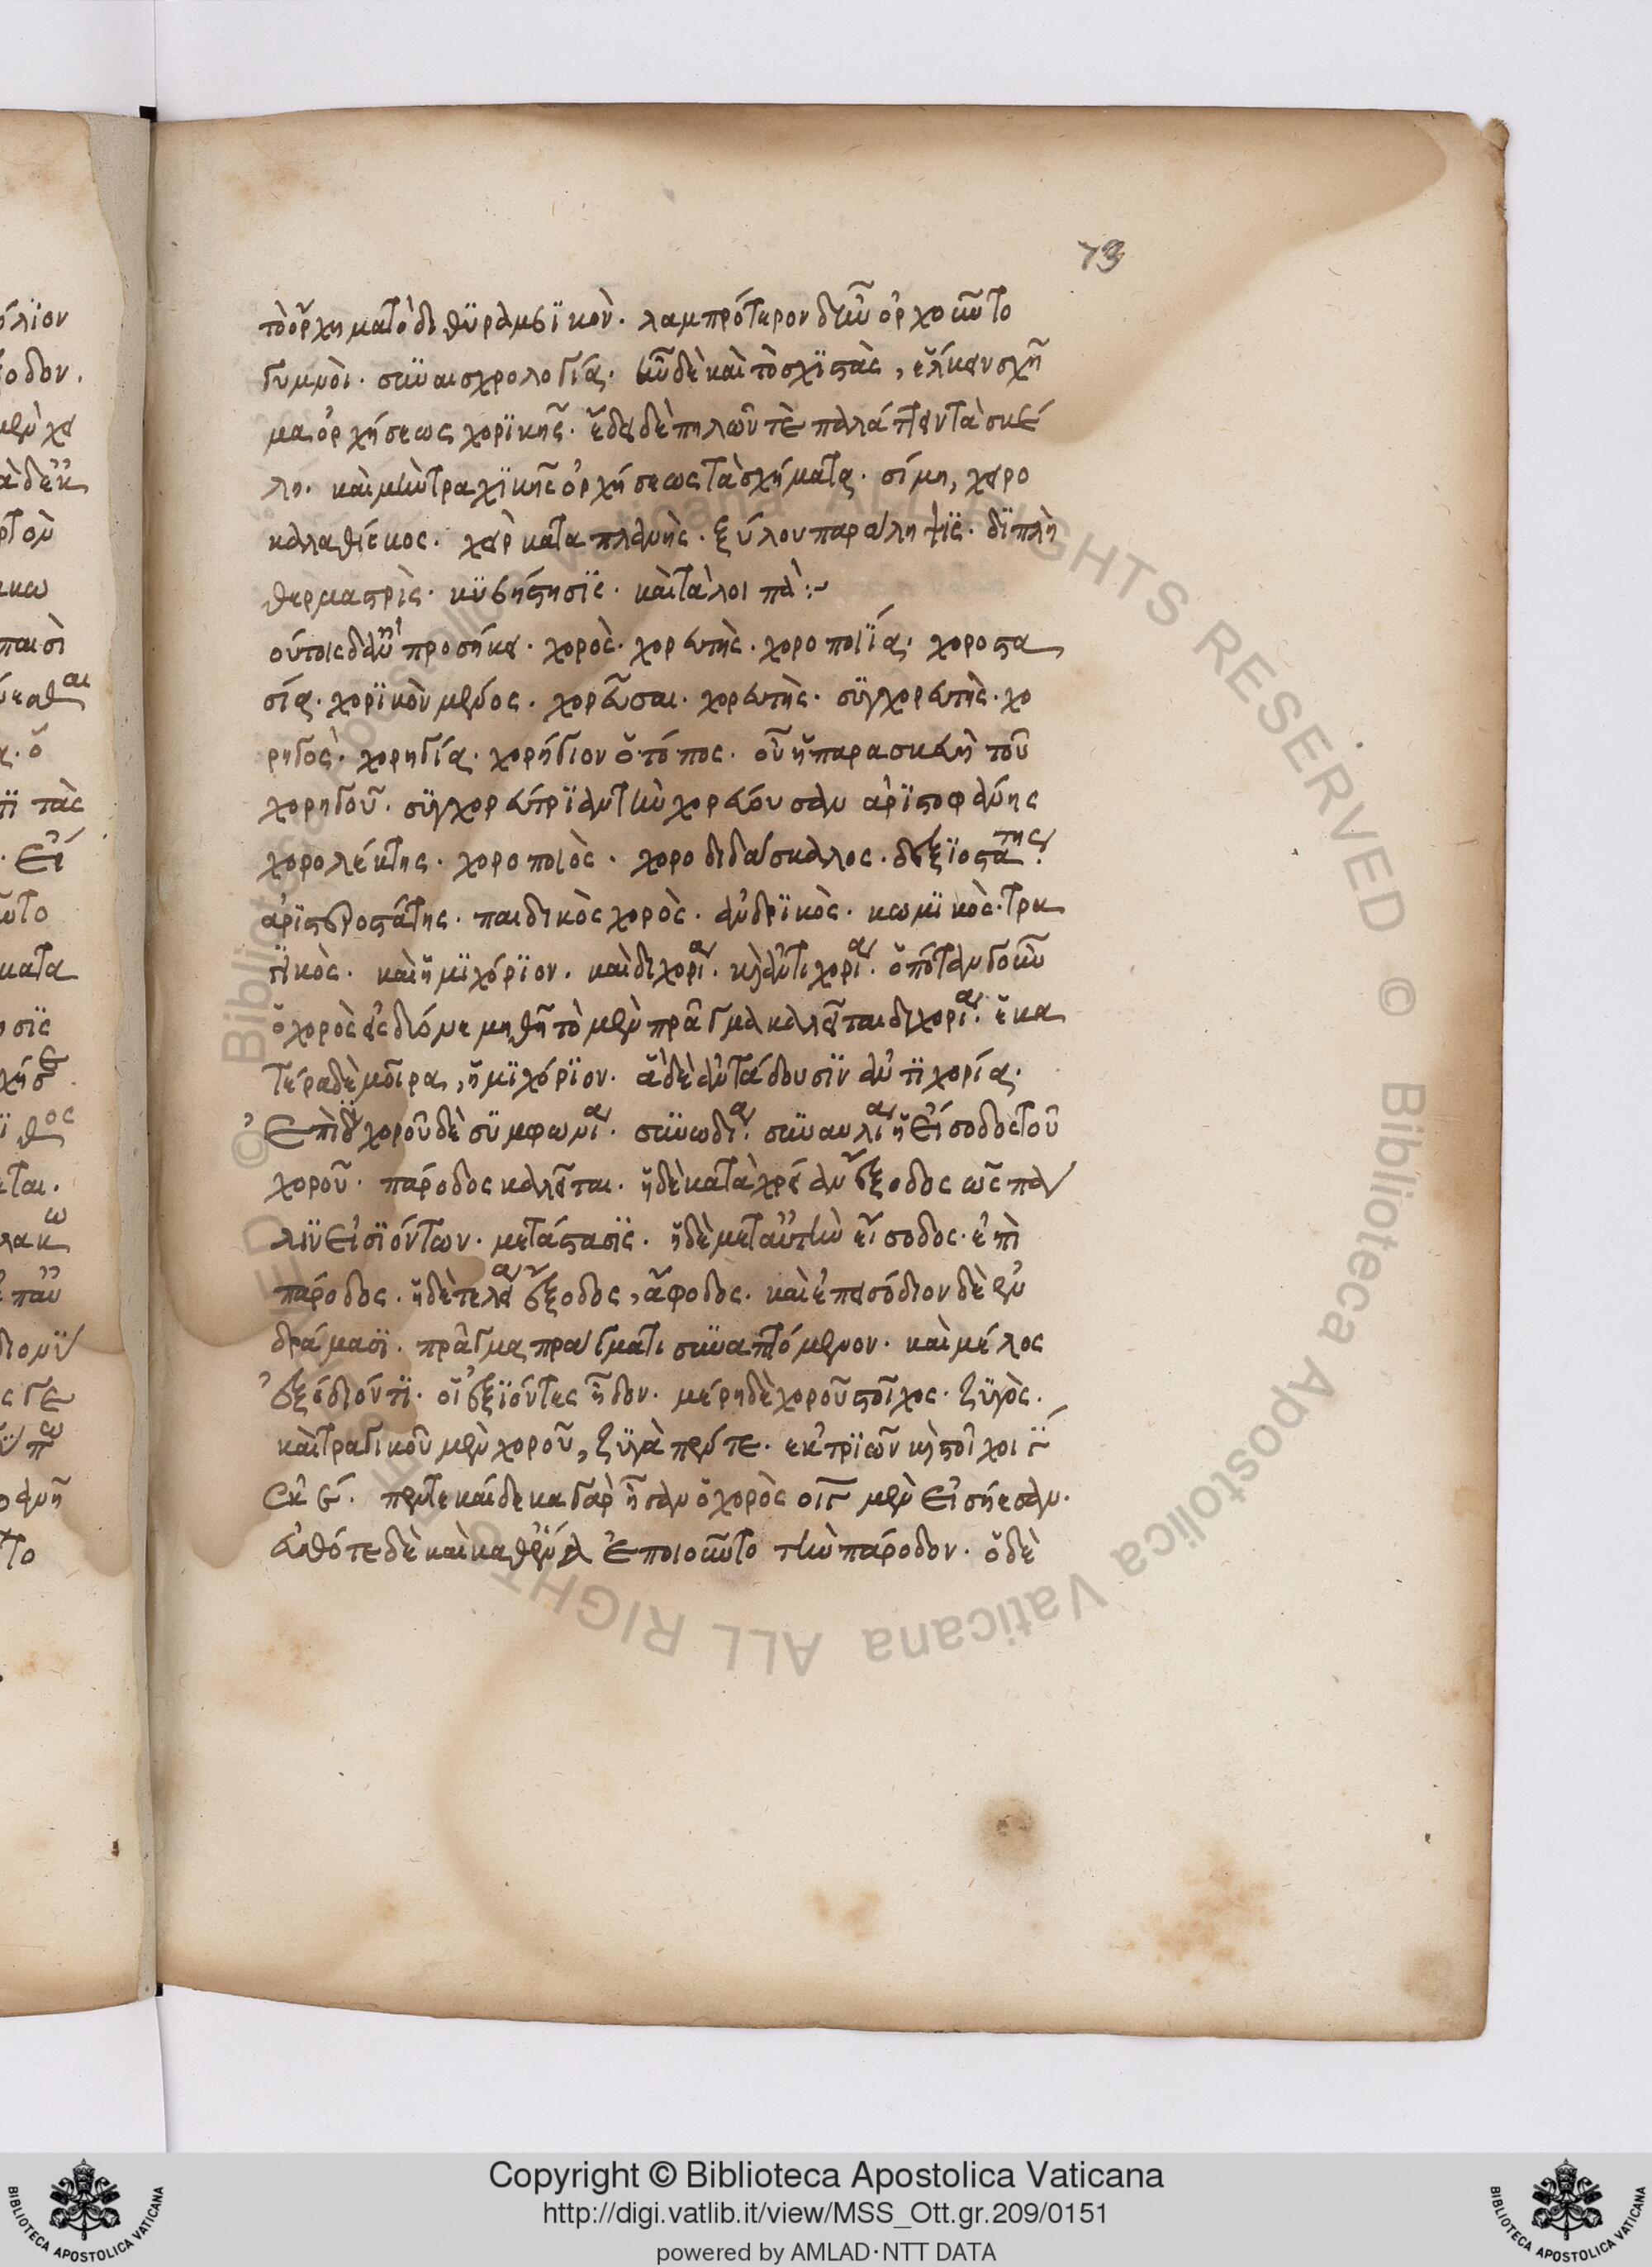 73
τὸ ὄρχημα τὸ διθυραμβικὸν. λαμπρότερον δ' ἦν ὀρχοῖντο
γυμνοὶ. σὺν αἰσχρολογία. ἦν δὲ καὶ τὸ σχιστὰς, ἕλκειν σχῆ
μα ὀρχήσεως χορικῆς. ἔδει δὲ πηδῶντε παλάττειν τὰ σκέ
λη. καὶ μὴν τραγικῆς ὀρχήσεως τὰ σχήματα. σίμη, χειρο
καλαθίσκος. χεὶρ καταπλανὴς. ξύλου παράληψις. διπλὴ
θερμαστρὶς. κυβήστησις. καὶ τὰ λοιπὰ:~
οὕτοις δ' ἂν προσήκει. χορὸς. χορευτὴς. χοροποιΐα. χοροστα
σία. χορικὸν μέλος. χορεῦσαι. χορευτὴς. συγχορευτὴς. χο
ρηγὸς. χορηγία. χορήγιον ὁ τόπος. οὗ ἡ παρασκευὴ τοῦ
χορηγοῦ. συγχορεύτριαν τὴν χορεύουσαν ἀριστοφάνης
χορολέκτης. χοροποιὸς. χοροδιδάσκαλος. δεξιοστάτης.
ἀριστεροστάτης. παιδικὸς χορὸς. ἀνδρικὸς. κωμικὸς. τρα
γικὸς. καὶ ἡμιχόριον. καὶ διχορία. καὶ ἀντιχορία. ὁπόταν γοῦν
ὁ χορὸς εἰς δύο νεμηθῆ τὸ μὲν πρᾶγμα καλεῖται διχορία. ἑκα
τέρα δὲ μοῖρα, ἡμιχόριον. ἃ δὲ ἀντάδουσιν ἀντιχορία.
Ἐπὶ χοροῦ δὲ συμφωνία. συνωδία. συναυλία ἡ εἴσοδος τοῦ
χοροῦ. πάροδος καλεῖται. ἡ δὲ κατὰ χρείαν ἔξοδος ὡς πά
λιν εἰσιόντων. μετάστασις. ἡ δὲ μετ' αὐτὴν εἴσοδος. ἐπὶ
πάροδος. ἡ δὲ τελεία ἔξοδος, ἄφοδος. καὶ ἐπεισόδιον δὲ ἐν
δράμασι. πρᾶγμα πράγματι συναπτόμενον. καὶ μέλος
ἐξόδιόν τι. οἱ ἐξιόντες ἦδον. μέρη δὲ χοροῦ στοῖχος. ζυγὸς.
καὶ τραγικοῦ μὲν χοροῦ, ζυγὰ πέντε. ἐκ τριῶν καὶ στοῖχοι γ
ἐκ ε. πεντεκαίδεκα γὰρ ἦσαν ὁ χορὸς οἱ γ μὲν εἰσήεσαν.
ἔσθότε δὲ καὶ καθ' ἕνα ἐποιοῦντο τὴν πάροδον. ὁ δὲ
© Biblioteca Apostolica Vaticana ALL RIGHTS RESERVED
Copyright © Biblioteca Apostolica Vaticana
http://digi.vatlib.it/view/MSS_Ott.gr.209/0151
powered by AMLAD·NTT DATA
BIBLIOTECA APOSTOLICA VATICANA
BIBLIOTECA APOSTOLICA VATICANA